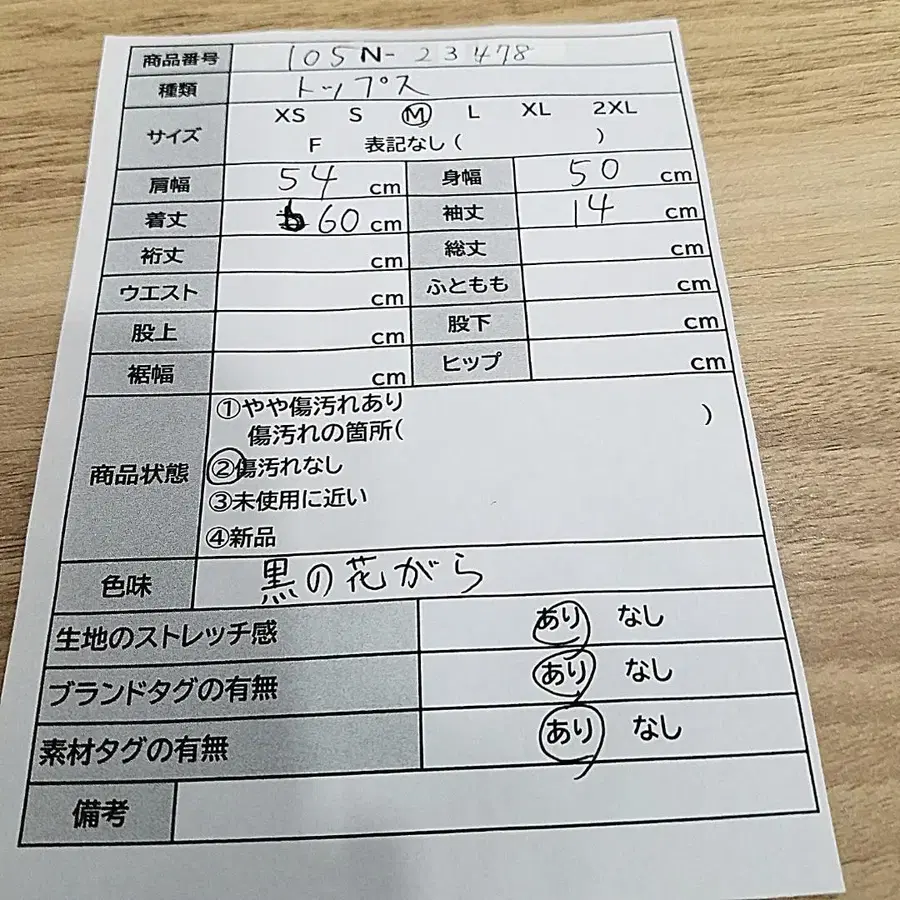 商品番号 105N-23478
種類 トップス
サイズ XS S M L XL 2XL
F 表記なし( )
肩幅 54 cm 身幅 50 cm
着丈 60 cm 袖丈 14 cm
裄丈 cm 総丈 cm
ウエスト cm ふともも cm
股上 cm 股下 cm
裾幅 cm ヒップ cm
商品状態 ①やや傷汚れあり
傷汚れの箇所( )
②傷汚れなし
③未使用に近い
④新品
色味 黒の花がら
生地のストレッチ感 あり なし
ブランドタグの有無 あり なし
素材タグの有無 あり なし
備考